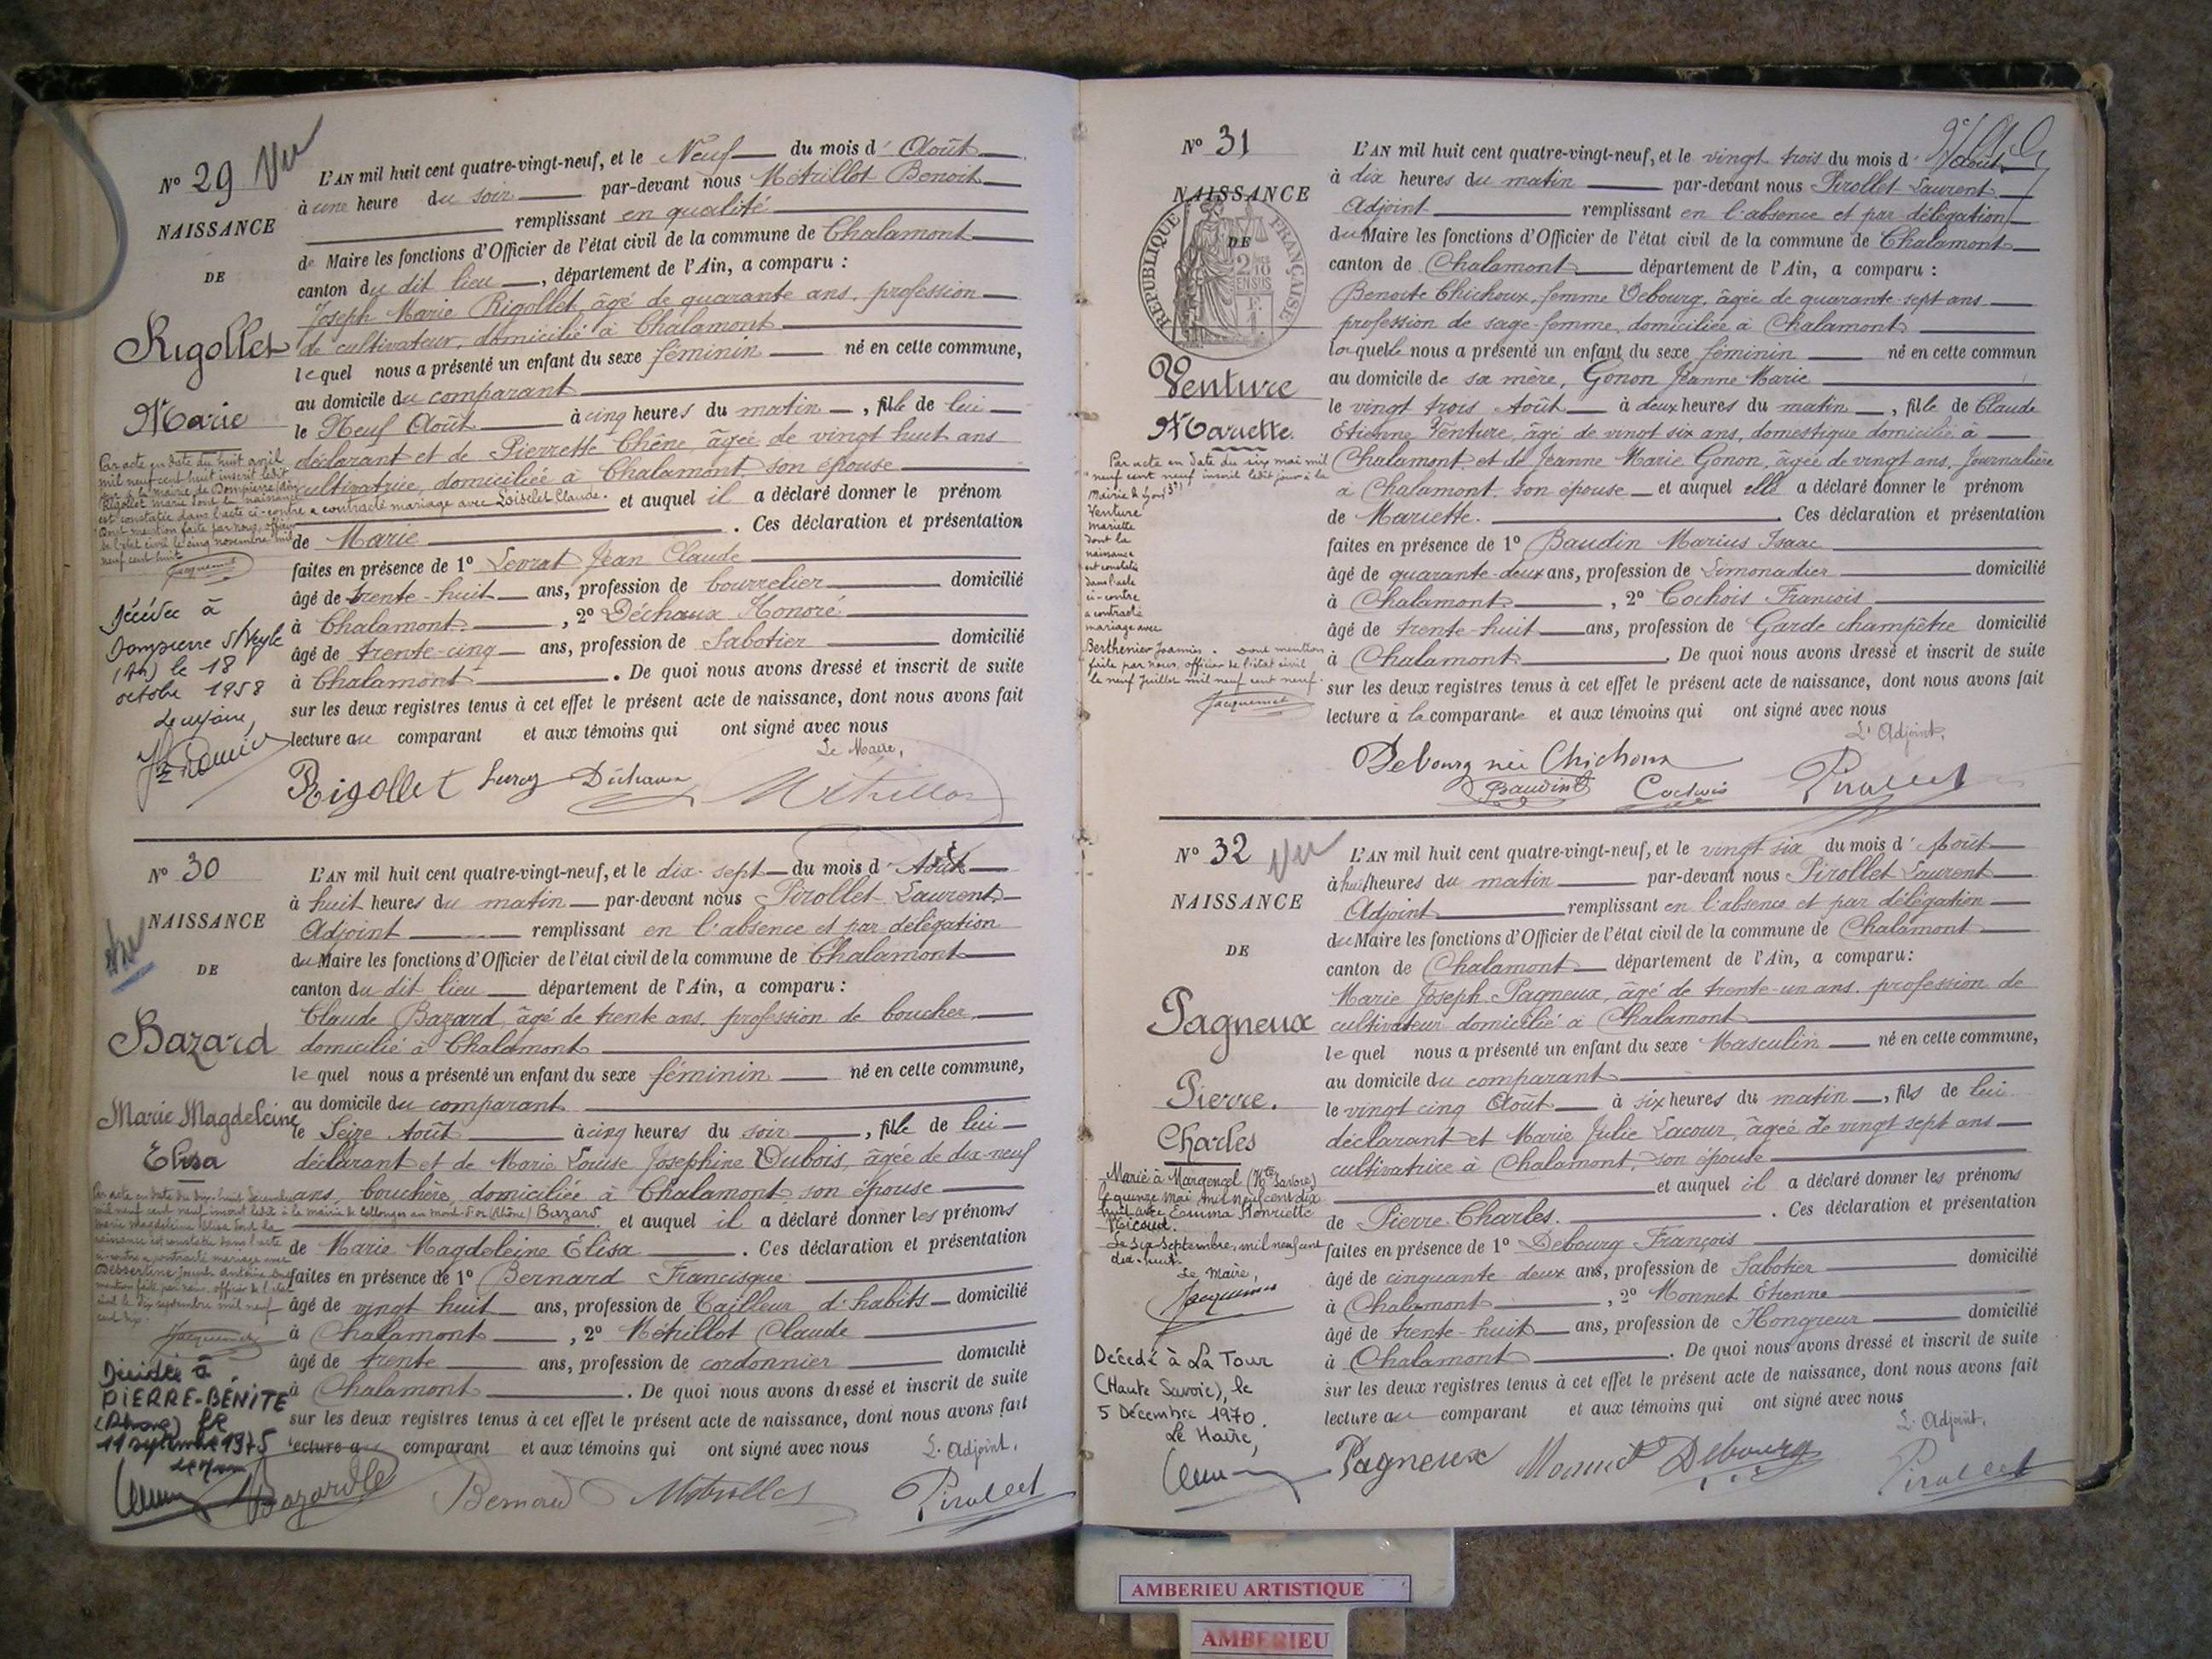 N° 29 Vu
NAISSANCE
DE
Rigollet
Marie
Par acte en date du huit avril
mil neuf cent huit inscrit ledit
jour à la mairie de Dompierre (Ain)
Rigollet Marie dont la naissance
est constatée dans l'acte ci-contre a contracté mariage avec Loiselet Claude.
Dont mention faite par nous, officier
de l'état civil le cinq novembre mil
neuf cent huit
Jacquemet
Décédée à
Dompierre S/Veyle
(Ain) le 18
octobre 1958
Le Maire,
L'AN mil huit cent quatre-vingt-neuf, et le Neuf du mois d' Août
à une heure du soir par-devant nous Métrillot Benoit
remplissant en qualité
de Maire les fonctions d'Officier de l'état civil de la commune de Chalamont
canton du dit lieu, département de l'Ain, a comparu :
Joseph Marie Rigollet âgé de quarante ans, profession
de cultivateur, domicilié à Chalamont
lequel nous a présenté un enfant du sexe féminin né en cette commune,
au domicile du comparant
le Neuf Août à cinq heures du matin, fille de lui
déclarant et de Pierrette Chêne, âgée de vingt huit ans
cultivatrice, domiciliée à Chalamont son épouse
et auquel il a déclaré donner le prénom
de Marie. Ces déclaration et présentation
faites en présence de 1° Levrat Jean Claude
âgé de trente-huit ans, profession de bourrelier domicilié
à Chalamont, 2° Déchaux Honoré
âgé de trente-cinq ans, profession de Sabotier domicilié
à Chalamont. De quoi nous avons dressé et inscrit de suite
sur les deux registres tenus à cet effet le présent acte de naissance, dont nous avons fait
lecture au comparant et aux témoins qui ont signé avec nous
Le Maire,
Rigollet Déchaux Métrillot
N° 30
NAISSANCE
DE
Bazard
Marie Magdeleine
Elisa
Par acte en date du dix-huit Decembre
mil neuf cent neuf inscrit ledit à la mairie de Collonges au mont-d'or (Rhône) Bazard
Marie Magdeleine Elisa dont la
naissance est constatée dans l'acte
ci-contre a contracté mariage avec
Dessertine Joseph Antoine Dont
mention faite par nous officier de l'état
civil le dix septembre mil neuf
cent dix.
Jacquemet
Décédée à
PIERRE-BÉNITE
(Rhône) le
11 septembre 1975
L'AN mil huit cent quatre-vingt-neuf, et le dix-sept du mois d' Août
à huit heures du matin par-devant nous Pirollet Laurent
Adjoint remplissant en l'absence et par délégation
du Maire les fonctions d'Officier de l'état civil de la commune de Chalamont
canton du dit lieu département de l'Ain, a comparu :
Claude Bazard, âgé de trente ans, profession de boucher
domicilié à Chalamont
lequel nous a présenté un enfant du sexe féminin né en cette commune,
au domicile du comparant
le Seize Août à cinq heures du soir, fille de lui
déclarant et de Marie Louise Josephine Dubois, âgée de dix-neuf
ans, bouchère, domiciliée à Chalamont son épouse
et auquel il a déclaré donner les prénoms
de Marie Magdeleine Élisa. Ces déclaration et présentation
faites en présence de 1° Bernard Francisque
âgé de vingt huit ans, profession de Tailleur d'habits domicilié
à Chalamont, 2° Métrillot Claude
âgé de trente ans, profession de cordonnier domicilié
à Chalamont. De quoi nous avons dressé et inscrit de suite
sur les deux registres tenus à cet effet le présent acte de naissance, dont nous avons fait
lecture au comparant et aux témoins qui ont signé avec nous
L'Adjoint.
Bazard Bernard Métrillot Pirollet
N° 31
NAISSANCE
DE
RÉPUBLIQUE FRANÇAISE
Venture
Mariette.
Par acte en date du six mai mil
neuf cent neuf inscrit ledit jour à la
Mairie de Lyon (3e)
Venture
Mariette
dont la
naissance
est constatée
dans l'acte
ci-contre
a contracté
mariage avec
Berthenier Joannès. Dont mention
faite par nous, officier de l'état civil
le neuf Juillet mil neuf cent neuf.
Jacquemet
L'AN mil huit cent quatre-vingt-neuf, et le vingt trois du mois d' Août
à dix heures du matin par-devant nous Pirollet Laurent
Adjoint remplissant en l'absence et par délégation
du Maire les fonctions d'Officier de l'état civil de la commune de Chalamont
canton de Chalamont département de l'Ain, a comparu :
Benoite Chichoux, femme Debourg, âgée de quarante-sept ans
profession de sage-femme, domiciliée à Chalamont
laquelle nous a présenté un enfant du sexe féminin né en cette commun
au domicile de sa mère, Gonon Jeanne Marie
le vingt trois Août à deux heures du matin, fille de Claude
Etienne Venture, âgé de vingt six ans, domestique domicilié à
Chalamont, et de Jeanne Marie Gonon, âgée de vingt ans, Journalière
à Chalamont, son épouse et auquel elle a déclaré donner le prénom
de Mariette. Ces déclaration et présentation
faites en présence de 1° Baudin Marius Isaac
âgé de quarante-deux ans, profession de Limonadier domicilié
à Chalamont, 2° Cochois Francois
âgé de trente-huit ans, profession de Garde champêtre domicilié
à Chalamont. De quoi nous avons dressé et inscrit de suite
sur les deux registres tenus à cet effet le présent acte de naissance, dont nous avons fait
lecture à la comparante et aux témoins qui ont signé avec nous
L'Adjoint.
Debourg née Chichoux
Baudin Cochois Pirollet
N° 32 Vu
NAISSANCE
DE
Pagneux
Pierre.
Charles
Marié à Margencel (Hte Savoie)
le quinze mai mil neuf cent dix
huit avec Emma Henriette
Le six Septembre, mil neuf cent
dix-huit.
Le Maire,
Jacquemet
Décédé à La Tour
(Haute Savoie), le
5 Décembre 1970.
Le Maire,
L'AN mil huit cent quatre-vingt-neuf, et le vingt six du mois d' Août
à huit heures du matin par-devant nous Pirollet Laurent
Adjoint remplissant en l'absence et par délégation
du Maire les fonctions d'Officier de l'état civil de la commune de Chalamont
canton de Chalamont département de l'Ain, a comparu :
Marie Joseph Pagneux, âgé de trente-un ans, profession de
cultivateur domicilié à Chalamont
lequel nous a présenté un enfant du sexe Masculin né en cette commune,
au domicile du comparant
le vingt cinq Août à six heures du matin, fils de lui
déclarant et Marie Julie Lacour, âgée de vingt sept ans
cultivatrice à Chalamont, son épouse
et auquel il a déclaré donner les prénoms
de Pierre Charles. Ces déclaration et présentation
faites en présence de 1° Debourg François
âgé de cinquante deux ans, profession de Sabotier domicilié
à Chalamont, 2° Monnet Etienne
âgé de trente-huit ans, profession de Hongreur domicilié
à Chalamont. De quoi nous avons dressé et inscrit de suite
sur les deux registres tenus à cet effet le présent acte de naissance, dont nous avons fait
lecture au comparant et aux témoins qui ont signé avec nous
L'Adjoint.
Pagneux Monnet Debourg Pirollet
AMBERIEU ARTISTIQUE
AMBERIEU